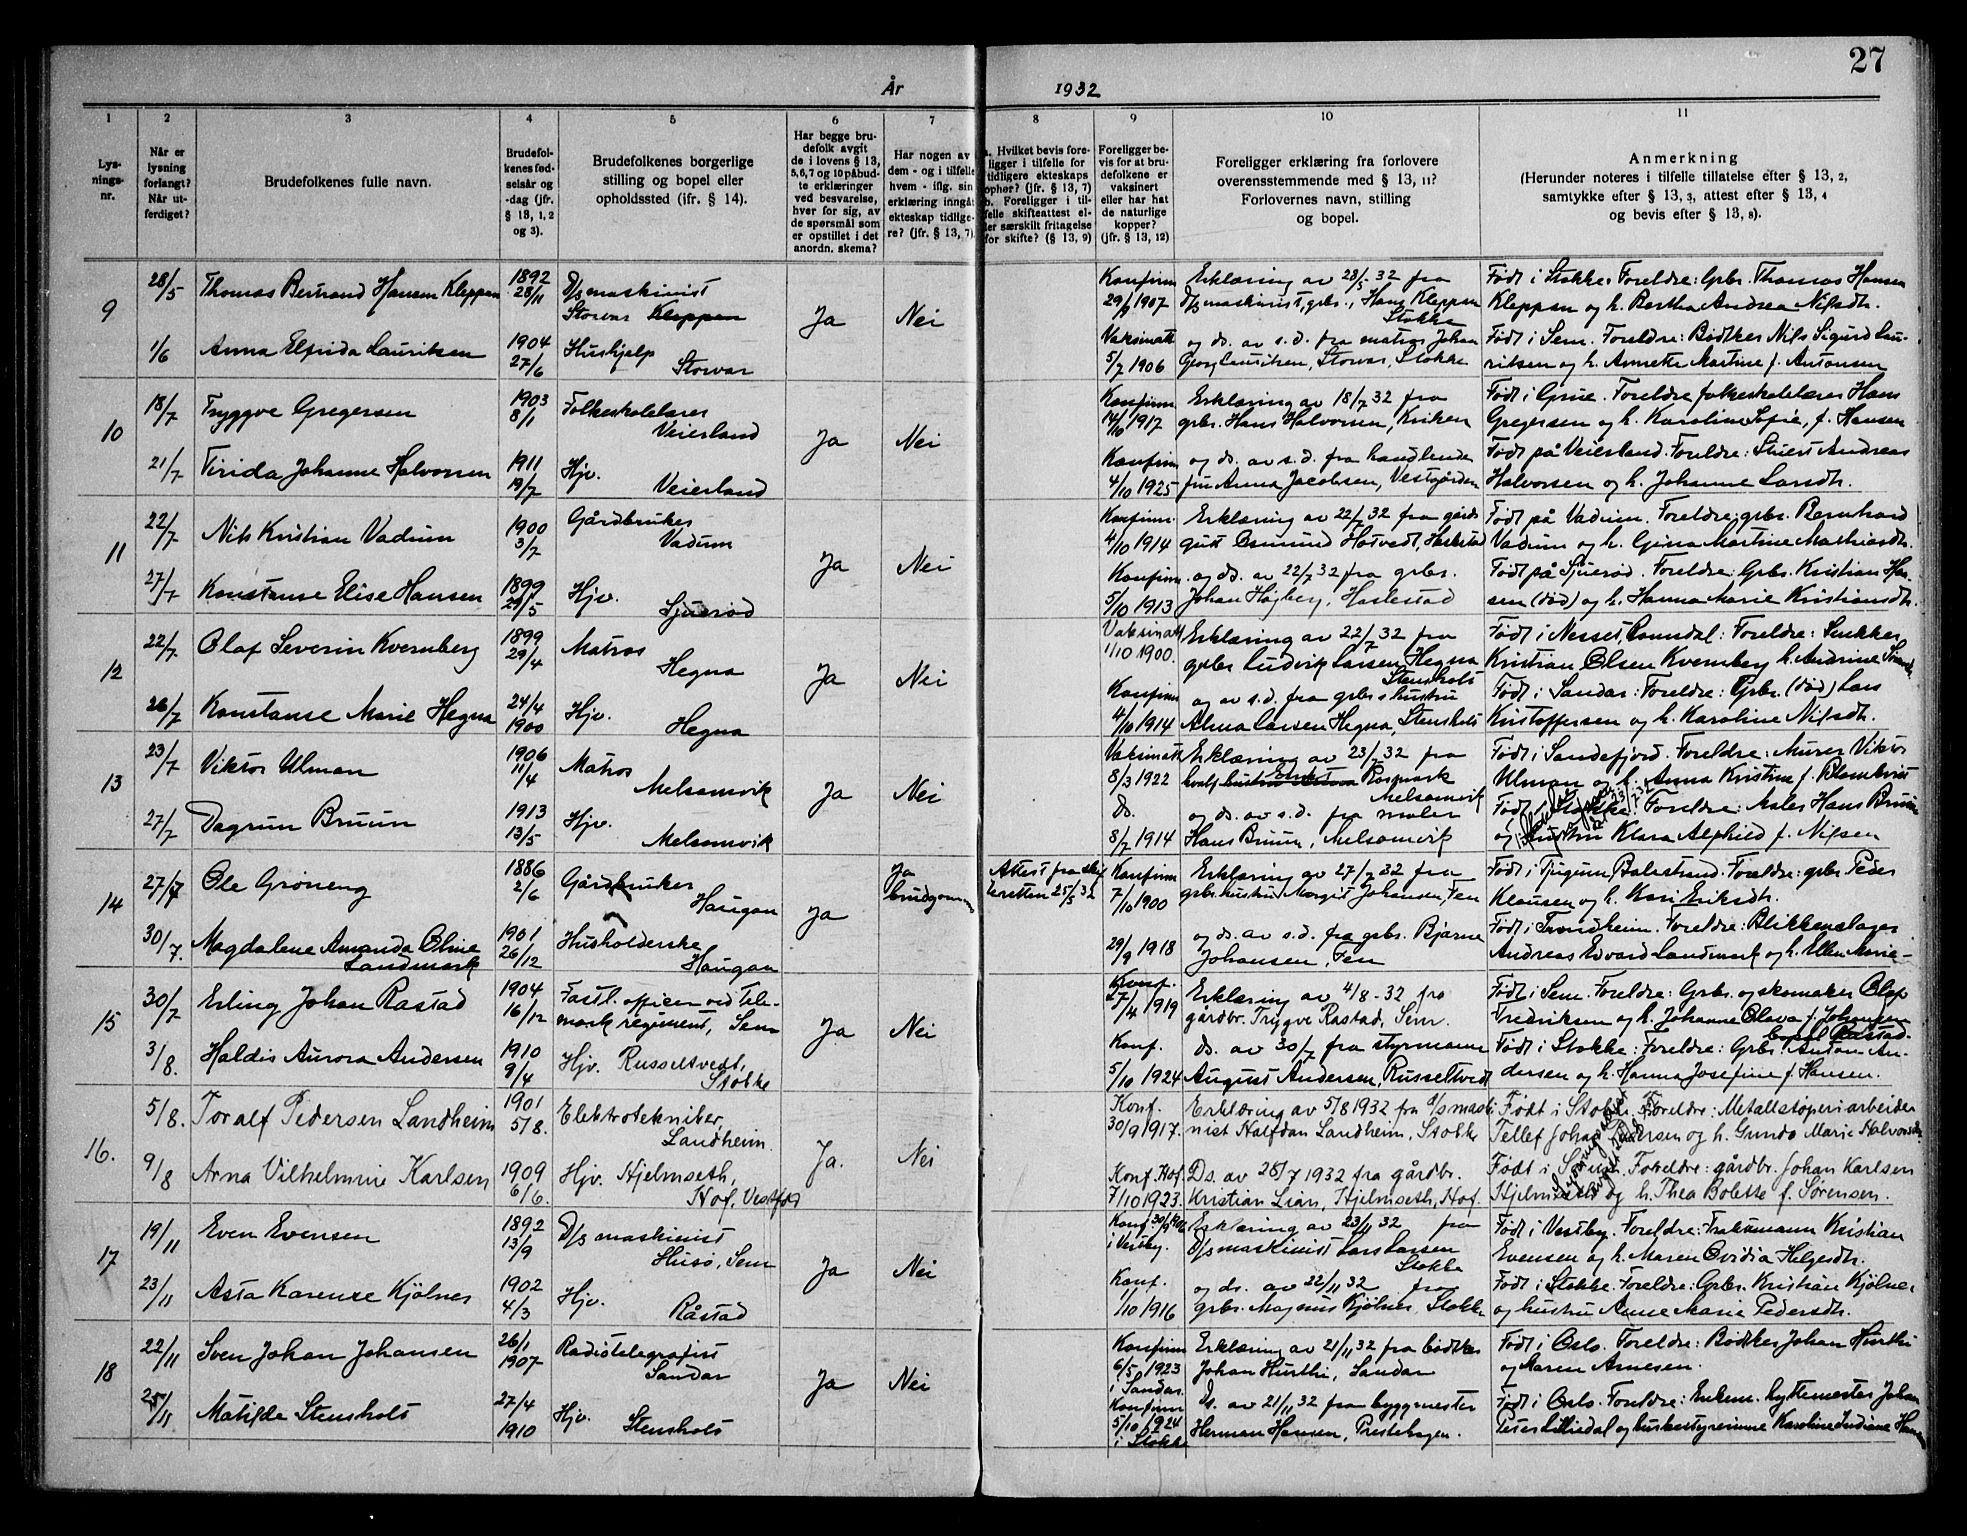 27
År 1932
1 2 3 4 5 6 7 8 9 10 11
Lysningsnr.
Når er lysning forlangt? Når utferdiget?
Brudefolkenes fulle navn.
Brudefolkenes fødselsår og -dag (jfr. § 13, 1, 2 og 3).
Brudefolkenes borgerlige stilling og bopel eller opholdssted (jfr. § 14).
Har begge brudefolk avgitt de i lovens § 13, 5, 6, 7 og 10 påbudte erklæringer ved besvarelse, hver for sig, av de spørsmål som er opstillet i det anordn. skema?
Har nogen av dem - og i tilfelle hvem - iflg. sin erklæring inngått ekteskap tidligere? (jfr. § 13, 7)
a. Hvilket bevis foreligger i tilfelle for tidligere ekteskaps ophør? (jfr. § 13, 7) b. Foreligger i tilfelle skifteattest eller særskilt fritagelse for skifte? (§ 13, 9)
Foreligger bevis for at brudefolkene er vaksinert eller har hat de naturlige kopper? (jfr. § 13, 12)
Foreligger erklæring fra forlovere overensstemmende med § 13, 11? Forlovernes navn, stilling og bopel.
Anmerkning (Herunder noteres i tilfelle tillatelse efter § 13, 2, samtykke efter § 13, 3, attest efter § 13, 4 og bevis efter § 13, 8).
9 28/5 Thomas Bertrand Hansen Kleppan 1892 28/11 D/s maskinist Storvar Kleppan Ja Nei Konfirm 29/9 1907 Erklæring av 28/5 32 fra D/s maskinist, grbr., Hans Kleppan Stokke Født i Stokke. Foreldre: Grbr. Thomas Hansen Kleppan og h. Bertha Andrea Nilsdtr.
1/6 Anna Elfrida Lauritsen 1904 27/6 Hushjelp Storvar Vaksinatt 5/7 1906 og ds. av s.d. fra matros Johan Georg Lauritsen, Storvar, Stokke Født i Sem. Foreldre: Bødker Nils Sigurd Lauritsen og h. Annette Martine f. Antonsen
10 18/7 Tryggve Gregersen 1903 8/1 Folkeskolelærer Veierland Ja Nei Konfirm 14/10 1917 Erklæring av 18/7 32 fra grbr. Hans Halvorsen, Kriken Født i Grue. Foreldre folkeskolelærer Hans Gregersen og h. Karoline Sofie, f. Hansen
21/7 Tirida Johanne Halvorsen 1911 19/7 Hjv. Veierland Konfirm 4/10 1925 og ds. av s.d. fra handlende fru Anna Jacobsen, Vestgården Født på Veierland. Foreldre: Stuert Andreas Halvorsen og h. Johanne Larsdtr.
11 22/7 Nils Kristian Vadum 1900 3/7 Gårdbruker Vadum Ja Nei Konfirm. 4/10 1914 Erklæring av 22/7 32 fra gårdsgutt Osmund Hotvedt, Haslestad Født på Vadum. Foreldre: grbr. Bernhard Vadum og h. Gina Martine Mathiasdtr.
27/7 Konstanse Elise Hansen 1899 29/5 Hjv. Sjuerød Konfirm. 5/10 1913 og ds. av 22/7 32 fra grbr. Johan Høyberg, Haslestad Født på Sjuerød. Foreldre: Grbr. Kristian Hansen (død) og h. Hanna Marie Kristiansdtr.
12 22/7 Olaf Severin Kvernberg 1899 29/4 Matros Hegna Ja Nei Vaksinatt 1/10 1900. Erklæring av 22/7 32 fra grbr Ludvik Larsen Hegna Stensholt Født i Nesset, Romsdal: Foreldre: Snekker Kristian Olsen Kvernberg h. Andrine
26/7 Konstanse Marie Hegna 24/4 1900 Hjv. Hegna Konfirm 4/10 1914 og av s.d. fra grbr.s hustru Alma Larsen Hegna, Stensholt Født i Sandar: Foreldre: Grbr. (død) Lars Kristoffersen og h. Karoline Nilsdtr.
13 23/7 Viktor Ulman 1906 11/4 Matros Melsomvik Ja Nei Vaksinatt 8/3 1922 Erklæring av 23/7 32 fra Rosmark Melsomvik Født i Sandefjord. Foreldre: Murer Viktor Ulman og h. Anna Kristine f. Blomkvist
27/7 Dagrun Bruun 1913 13/5 Hjv. Melsomvik Ds. 8/7 1914 og ds. av s.d. fra maler Hans Bruun, Melsomvik Født i Stokke. Foreldre: Maler Hans Bruun og hustru Klara Alfhild f. Nilsen
14 27/7 Ole Grøneng 1886 2/6 Gårdbruker Haugan Ja Ja brudgommen Attest fra skifteretten 25/5 32 Konfirm 7/10 1900 Erklæring av 27/7 32 fra grbr. hustru Margit Johansen, Fen Født i Tjugum, Balestrand. Foreldre: grbr Peder Klausen og h. Kari Eriksdtr.
30/7. Magdalene Amanda Oline Landmark 1901 26/12 Husholderske Haugan 29/9 1918 og ds. av s.d. fra grbr. Bjarne Johansen, Fen Født i Trondheim. Foreldre: Blikkenslager Andreas Edvard Landmark og h. Ellen Marie-
15 30/7 Erling Johan Råstad 1904 16/12 Fastl. officer ved Telemark regiment, Sem Ja Nei Konf. 27/4 1919 Erklæring av 4/8 - 32 fra gårdbr. Trygve Råstad, Sem. Født i Sem. Foreldre: Grbr. og skomaker Olaf Fredriksen og h. Johanne Olava f. Johansen bopel Råstad.
3/8. Haldis Aurora Andersen 1910 9/4 Hjv. Russeltvedt, Stokke Konf. 5/10 1924 Ds. av 30/7 fra styrmann August Andersen, Russeltvedt Født i Stokke: Foreldre: Grbr. Anton Andersen og h. Hanna Josefine f. Hansen.
16. 5/8. Toralf Pedersen Landheim 1901 5/8. Elektrotekniker, Landheim. Ja. Nei Konf. 30/9 1917. Erklæring av 5/8 1932 fra d/s maskinist Halfdan Landheim, Stokke Født i Stokke. Foreldre: Metallstøperiarbeider Tellef Johan Pedersen og h. Gunda Marie Halvorsdtr
9/8 Arna Vilhelmine Karlsen 1909 6/6. Hjv. Hjelmseth, Hof, Vestfold Konf. Hof. 7/10 1923. Ds. av 28/7 1932 fra gårdbr. Kristian Lian, Hjelmseth, Hof. Født i Foreldre: gårdbr. Johan Karlsen Hjelmseth og h. Thea Bolette f. Sørensen.
17 19/11 Even Evensen 1892 13/9 D/s maskinist Husø, Sem Ja Nei Konf. i Vestby. Erklæring av 23/11 32 fra D/s maskinist Lars Larsen Stokke Født i Vestby. Foreldre: Kristian Evensen og h. Maren Ovidia Helgesdtr.
23/11 Asta Karense Kjølner 1902 4/3 Hjv. Råstad Konf. 1/10 1916 og ds. av 22/11 32 fra grbr. Magnus Kjølner, Stokke Født i Stokke. Foreldre: Grbr. Kristian Kjølner og hustru Anne Marie Pedersdtr.
18 22/11 Sven Johan Johansen 26/1 1907 Radiotelegrafist Sandar Ja Nei Konfirm 6/5 1923 i Sandar. Erklæring av 21/11 32 fra bødker Johan Hurthi, Sandar Født i Oslo. Foreldre: Bødker Johan Hurthi og Maren Arnesen.
25/11 Matilde Stensholt 27/4 1910 Hjv. Stensholt Konfirm 5/10 1924 i Stokke Ds. av 21/11 32 fra byggmester Herman Hansen, Prestehagen. Født i Oslo. Foreldre: Enkem. hyttemester Johan Peter Lilledal og husbestyrerinne Karoline Indiane